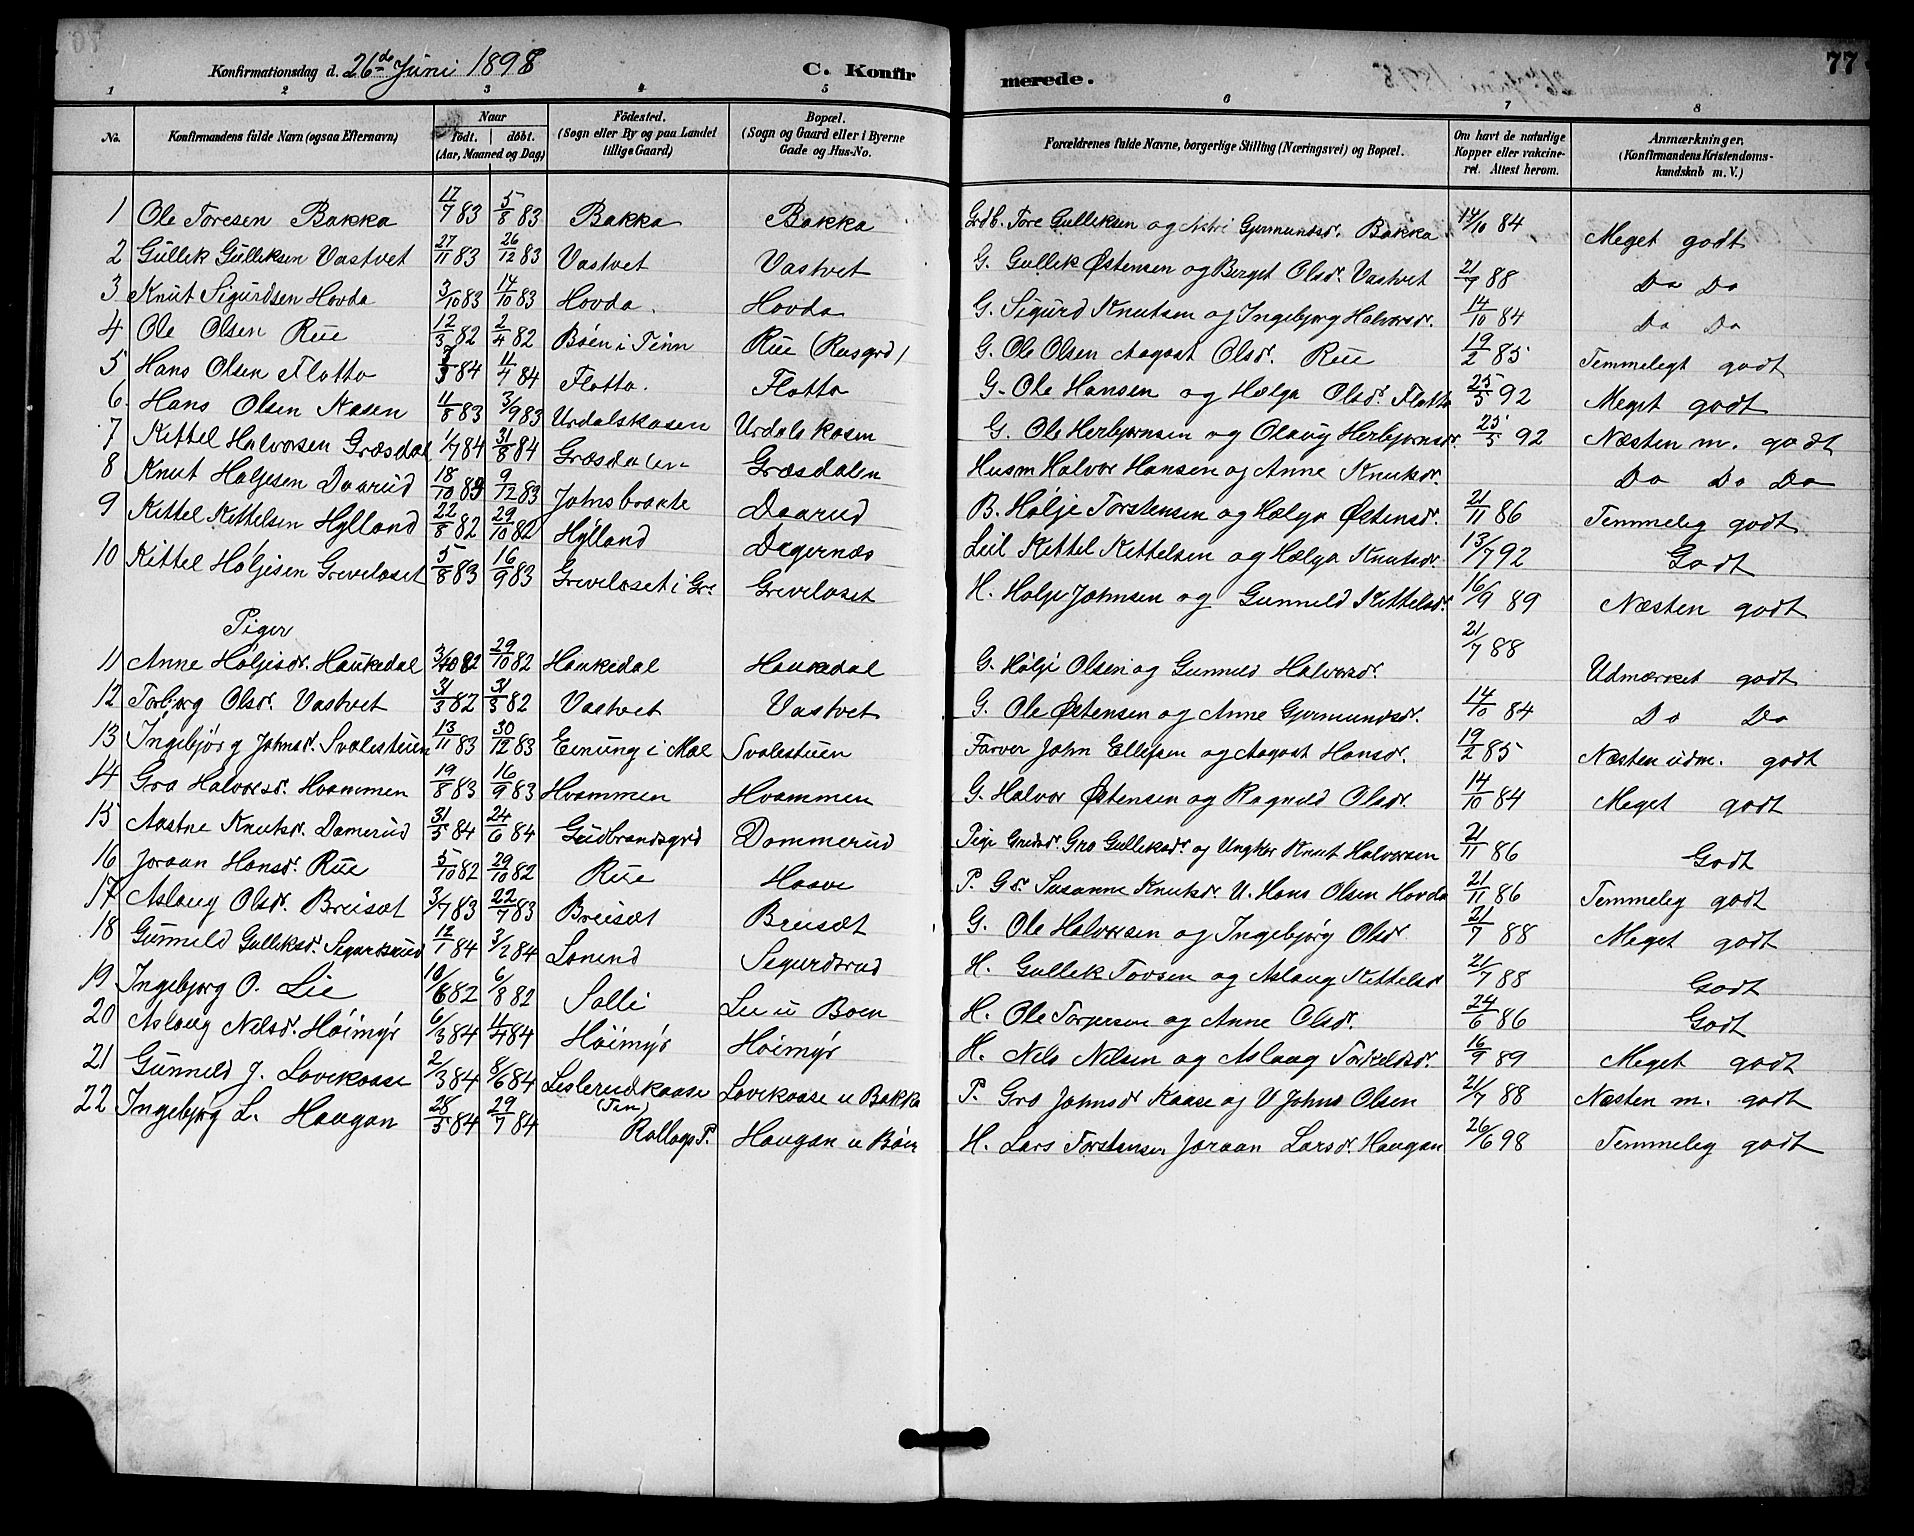 Konfirmationsdag d. 26de Juni 1898 C. Konfirmerede. 77
1 2 3 4 5 6 7 8
No. Konfirmandens fulde Navn (ogsaa Efternavn) Naar født. døbt. (Aar, Maaned og Dag) Fødested. (Sogn eller By og paa Landet tillige Gaard) Bopæl. (Sogn og Gaard eller i Byerne Gade og Hus-No. Forældrenes fulde Navne, borgerlige Stilling (Næringsvei) og Bopæl. Om havt de naturlige Kopper eller vakcineret. Attest herom. Anmærkninger. (Konfirmandens Kristendomskundskab m. V.)
1 Ole Toresen Bakka 17/7 83 5/8 83 Bakka Bakka Grdb. Tore Gulleksen og Astri Gjermundsdr. Bakka 14/10 84 Meget godt
2 Gullik Gulliksen Vastvet 27/11 83 26/12 83 Vastvet Vastvet G. Gullik Østensen og Berget Olsdr. Vastvet 21/7 88 Do Do
3 Knut Sigurdsen Hovda 3/10 83 14/10 83 Hovda. Hovda G. Sigurd Knutsen og Ingebjørg Halvorsdr. 14/10 84 Do Do
4 Ole Olsen Rue 12/3 82 2/4 82 Bøen i Tinn Rue (Rusgrd) G. Ole Olsen Aagost Olsdr. Rue 19/2 85 Temmeligt godt
5 Hans Olsen Flatto 84 11/7 84 Flatto. Flatto G. Ole Hansen og Hælga Olsdr. Flatto 25/5 92 Meget godt
6. Hans Olsen Kasen 11/8 83 3/9 83 Urdalskasen Urdalskasen G. Ole Herbjørnsen og Olaug Herbjørnsdr. 25/5 92 Næsten m. godt
7 Kittel Halvorsen Græsdal 1/7 84 31/8 84 Græsdalen Græsdalen Husm Halvor Hansen og Anne Knutsdr. Do Do Do
8 Knut Høljesen Daarud 18/10 83 9/12 83 Johnsbraate Daarud B. Hølje Torstensen og Hælga Østensdr. 21/11 86 Temmelig godt
9 Kittel Kittelsen Hylland 22/8 82 29/10 82 Hylland Degernæs Leil Kittel Kittelsen og Hælga Knutsdr. 13/7 92 Godt
10 Kittel Høljesen Greveløset 5/8 83 16/9 83 Greveløset i Gr. Greveløset H. Hølje Johnsen og Gunneld Kittelsdr. 16/9 89 Næsten godt
Piger
11 Anne Høljesdr. Haukedal 3/10 82 29/10 82 Haukedal Haukedal G. Hølje Olsen og Gunneld Halvorsdr. 21/7 88 Udmærket godt
12 Torbjørg Olsdr. Vastvet 31/3 82 31/3 82 Vastvet Vastvet G. Ole Østensen og Anne Gjermundsdr. 14/10 84 Do Do
13 Ingebjørg Johnsdr. Svalestuen 13/11 83 30/12 83 Einung i Møl Svalestuen Farver John Ellefsen og Aagost Hansdr. 19/2 85 Næsten udm. godt
14 Gro Halvorsdr. Hvammen 19/8 83 16/9 83 Hvammen Hvammen G. Halvor Østensen og Ragneld Olsdr. 14/10 84 Meget godt
15 Aastne Knutsdr. Damerud 31/5 84 24/6 84 Gudbrandsgrd Dammerud Pige Grdsdr. Gro Gulleksdr. og Ungkar Knut Halvorsen 21/11 86 Godt
16 Joraan Hansdr. Rue 5/10 82 29/10 82 Rue Haave P. Gdr. Susanne Knutsdr. U. Hans Olsen Hovda 21/11 86 Temmelig godt
17 Aslaug Olsdr. Breisæt 3/7 83 22/7 83 Breisæt Breisæt G. Ole Halvorsen og Ingebjørg Olsdr 21/7 88 Meget godt
18 Gunneld Gulleksdr. Sigurdsrud 12/1 84 3/2 84 Lønend Sigurdsrud H. Gullek Tovsen og Aslaug Kittelsdr 21/7 88 Godt
19 Ingebjørg O. Lie 10/6 82 6/8 82 Solli Lie u Boen H. Ole Torgersen og Anne Olsdr. 24/6 86 Godt
20 Aslaug Nilsdr. Høimyr 6/3 84 11/4 84 Høimyr Høimyr H. Nils Nilsen og Aslaug Torkeldsdr. 16/9 89 Meget godt
21 Gunneld J. Lovekaase 2/3 84 8/6 84 Leslerudkaase (Tin) Lovekaase u Bakka P. Gro Johnsdr Kaase og U Johns Olsen 21/7 88 Næsten m. godt
22 Ingebjørg L. Haugan 28/5 84 29/7 84 Rollags P. Haugan u Bøen H. Lars Torstensen Joraan Larsdr. Haugan 26/6 98 Temmelig godt